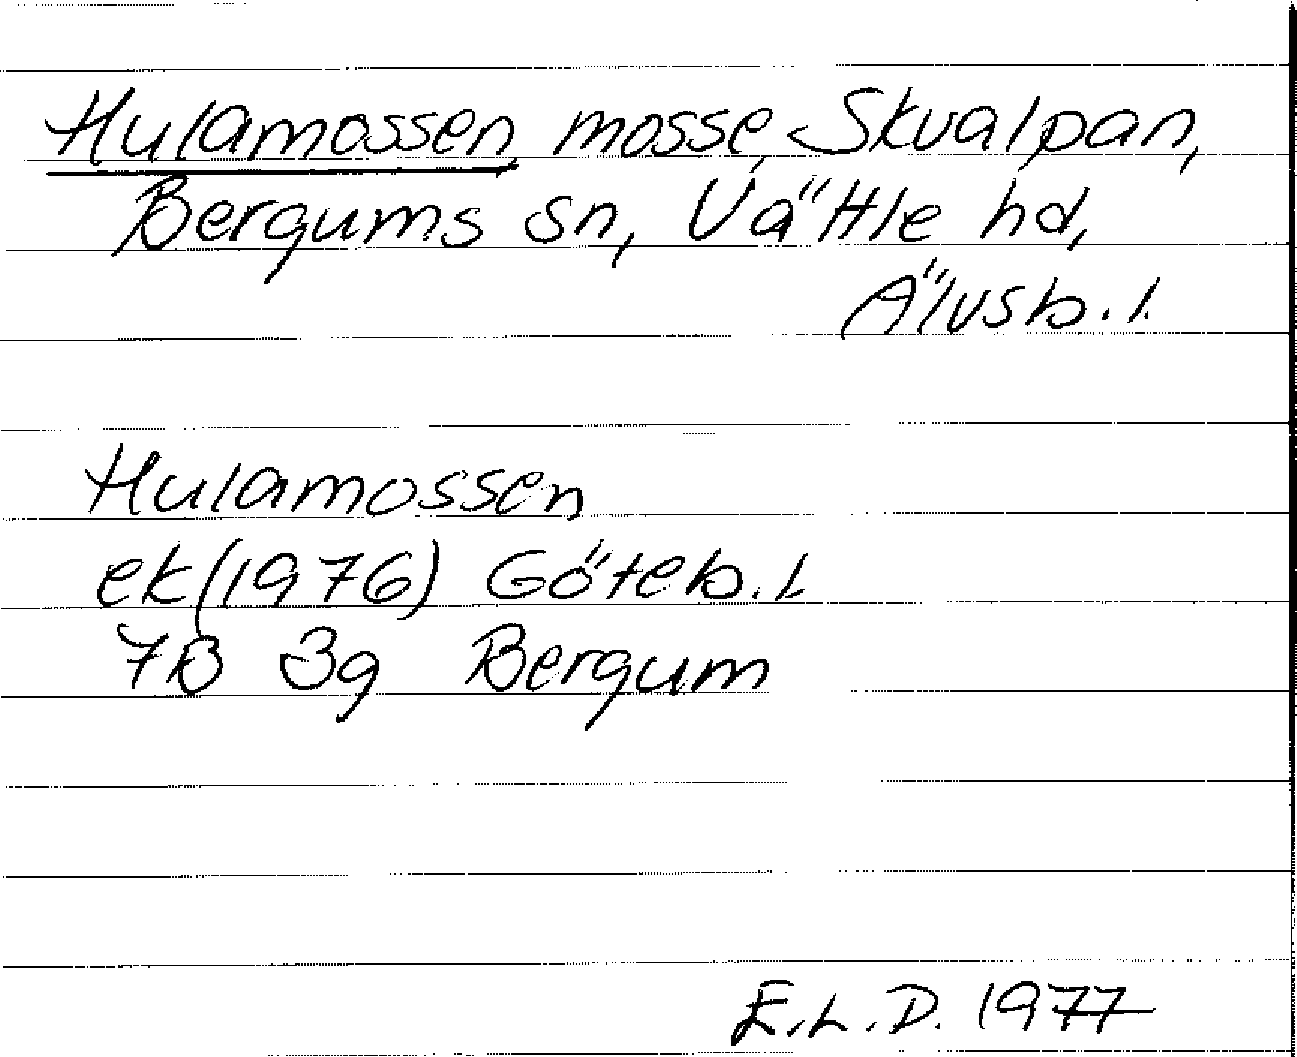 Hulamossen, mosse, Skvalpan,
Bergums sn, Vättle hd,
Älvsb. l.
Hulamossen
ek(1976) Göteb. l
7B 3g Bergum
E.L.D. 1977